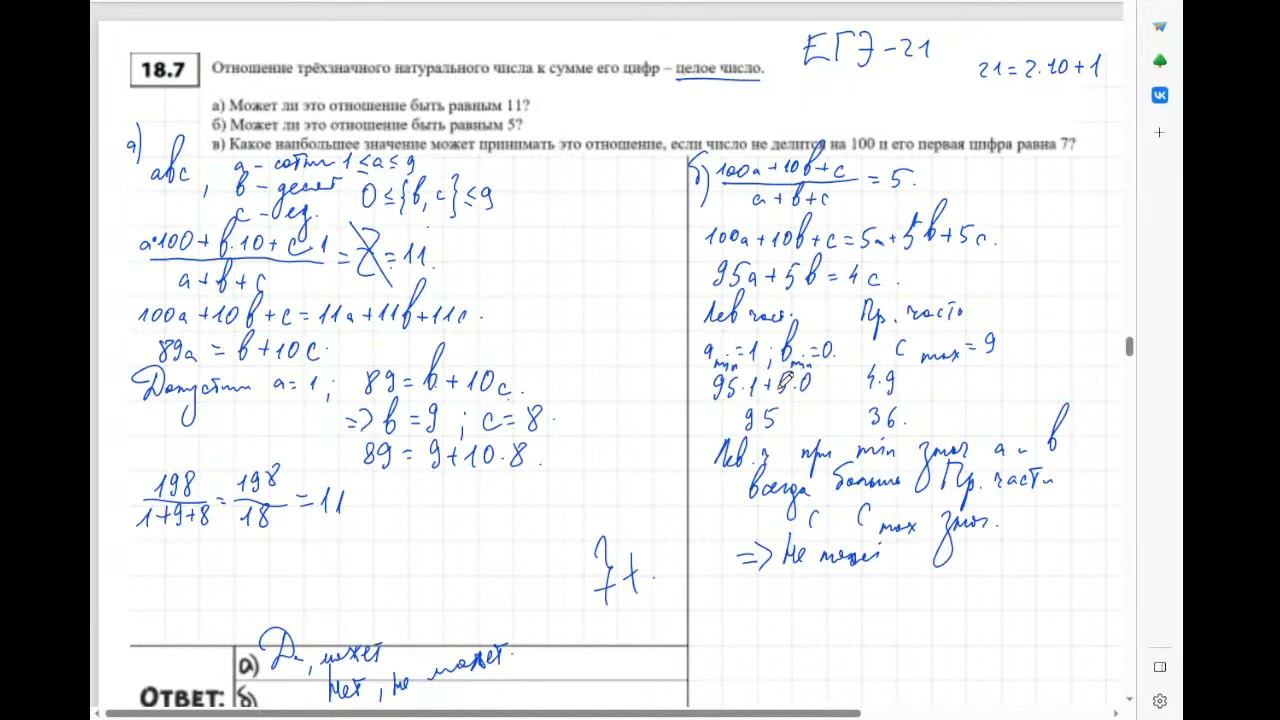 ЕГЭ-21
21=2·10+1
18.7
Отношение трёхзначного натурального числа к сумме его цифр – целое число.
а) Может ли это отношение быть равным 11?
б) Может ли это отношение быть равным 5?
в) Какое наибольшее значение может принимать это отношение, если число не делится на 100 и его первая цифра равна 7?
а)
abc, a - сотни 1≤a≤9
b - десят 0≤{b,c}≤9
c - ед.
a·100+b·10+c·1
a+b+c
= Z = 11.
100a+10b+c=11a+11b+11c.
89a = b+10c.
Допустим a=1; 89=b+10c.
=> b=9; c=8.
89=9+10·8.
198/1+9+8 = 198/18 = 11
7+.
б)
100a+10b+c
a+b+c
= 5.
100a+10b+c=5a+5b+5c.
95a+5b=4c.
Лев част. Пр. часть
a min=1; b min=0. c max=9
95·1+5·0 4·9
95 36.
Лев. ч при min знач a и b
всегда больше Пр. части
с c max знач.
=> Не может
ОТВЕТ:
а) Да, может
б) Нет, не может.